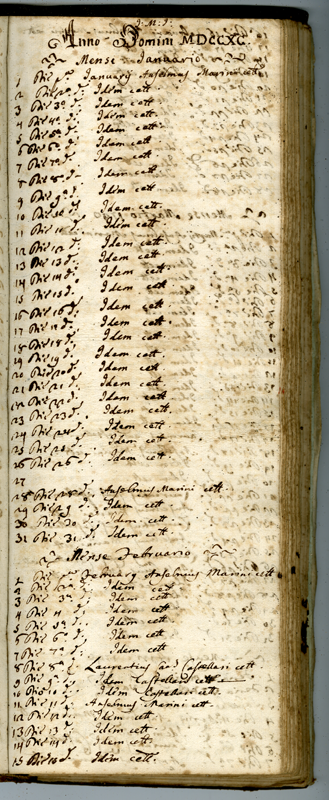 J. M. J.
Anno Domini MDCCXC
Mense Januario
1 Die pa January Anselmus Marini cett
2 Die 2a d. Idem cett
3 Die 3a d. Idem cett
4 Die 4a d. Idem cett
5 Die 5a d. Idem cett
6 Die 6a d. Idem cett
7 Die 7a d. Idem cett
8 Die 8a d. Idem cett
9 Die 9a d. Idem cett
10 Die 10 d. Idem cett
11 Die 11 d. Idem cett
12 Die 12 d. Idem cett
13 Die 13 d. Idem cett
14 Die 14 d. Idem cett
15 Die 15 d. Idem cett
16 Die 16 d. Idem cett
17 Die 17 d. Idem cett
18 Die 18 d. Idem cett
19 Die 19 d. Idem cett
20 Die 20 d. Idem cett
21 Die 21 d. Idem cett
22 Die 22 d. Idem cett
23 Die 23 d. Idem cett
24 Die 24 d. Idem cett
25 Die 25 d. Idem cett
26 Die 26 d. Idem cett
27
28 Die 28 d. Anselmus Marini cett
29 Die 29 d. Idem cett
30 Die 30 d. Idem cett
31 Die 31 d. Idem cett
Mense Februario
1 Die pa February Anselmus Marini cett
2 Die 2a d. Idem cett
3 Die 3a d. Idem cett
4 Die 4 d. Idem cett
5 Die 5a d. Idem cett
6 Die 6a d. Idem cett
7 Die 7a d. Idem cett
8 Die 8a d. Laurentius Castellari cett
9 Die 9a d. Idem Castellari cett
10 Die 10 d. Idem Castellari cett
11 Die 11 d. Anselmus Marini cett
12 Die 12 d. Idem cett
13 Die 13 d. Idem cett
14 Die 14 d. Idem cett
15 Die 15 d. Idem cett